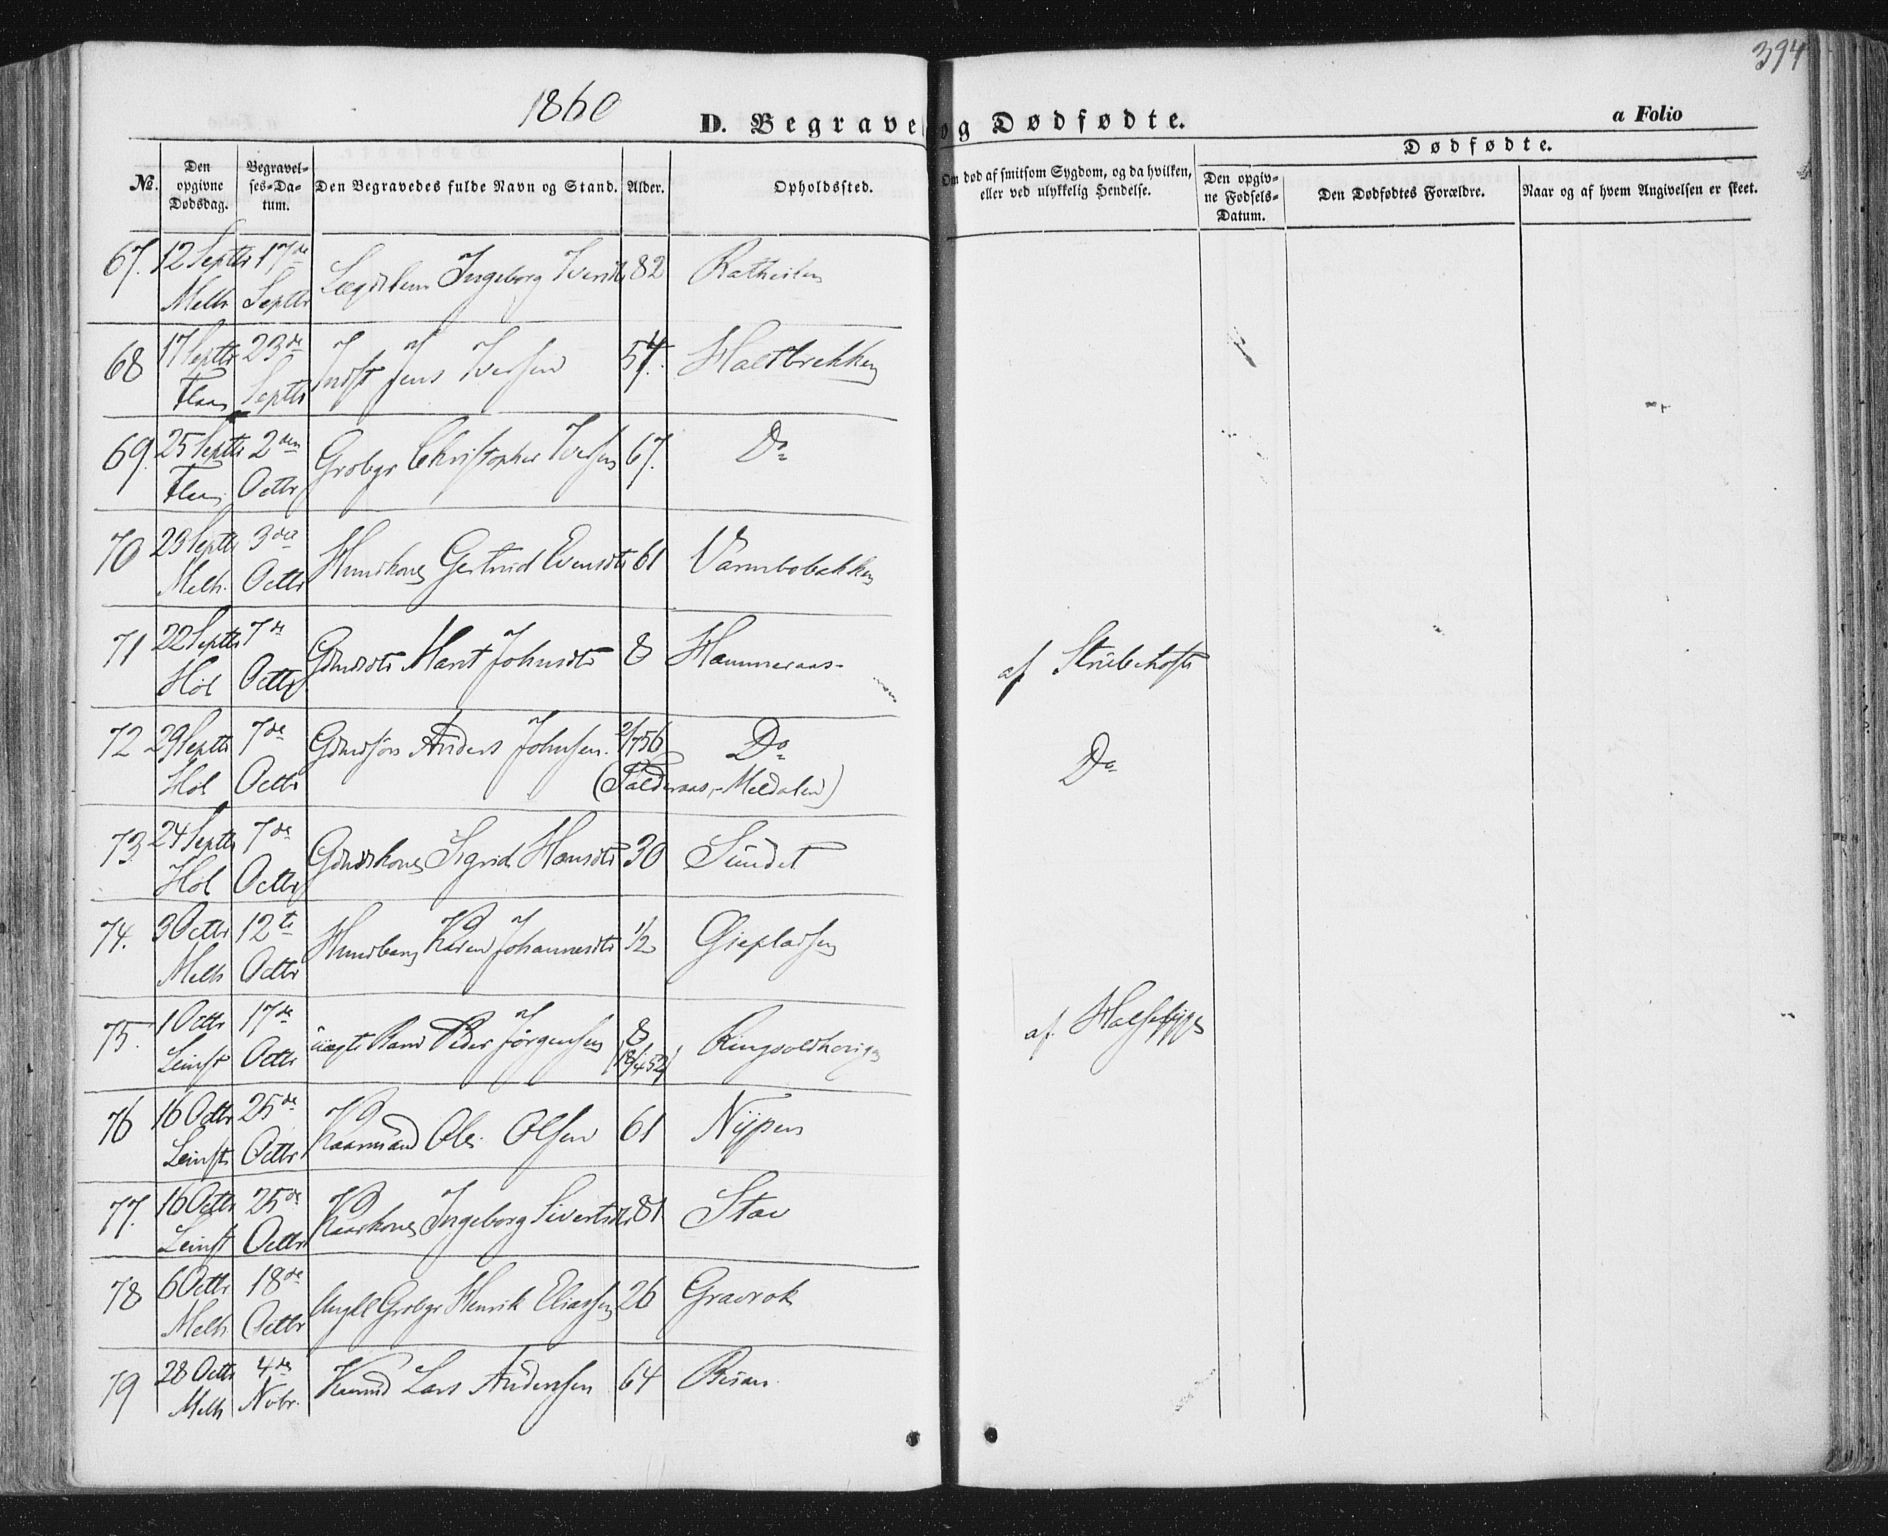 394
1860
D. Begrave og Dødfødte.
a Folio
No.
Den opgivne Dødsdag.
Begravelses-Datum.
Den Begravedes fulde Navn og Stand.
Alder.
Opholdssted.
Om død af smitsom Sygdom, og da hvilken, eller ved ulykkelig Hendelse.
Dødfødte.
Den opgivne Fødsels-Datum.
Den Dødfødtes Forældre.
Naar og af hvem Angivelsen er skeet.
67. 12 Septbr 17de Ingeborg Iversdtr 82
Melh Septbr
68 17 Septbr 23de Indst Jens Iversen 54.
Flaa Septbr
69. 25 Septbr 2den Grdbgr Christopher Iversen 67. Do
Flaa Octbr
70 29 Septbr 3die Gertrud Evensdtr 61 Varmbobakken
Melh. Octbr
71 22 Septbr 7de Gdmdsdtr Marit Johnsdtr 8 Hammeraas
af Strubehoste
Höl Octbr
72 29 Septbr 7de Gdmdssön Anders Johnsen. 2/7 56 Do
Do
Höl Octbr (Meldalen)
73 24 Septbr 7de Gdmdskone Sigrid Hansdtr 30 Sundet
Höl Octbr
74. 3 Octbr 12te Karen Johannesdtr 1/2
Melh Octbr
75. 1 Octbr 17de uægte Barn Peder Jörgensen 8
af Halssyge
Leinst Octbr (18/4 52)
76 16 Octbr 25de Kaarmand Ole Olsen 61 Nypen
Leinst Octbr
77. 16 Octbr 25de Kaarkone Ingeborg Sivertsdtr 81 Stav
Leinst Octbr
78 6 Octbr 18de Ungkl Grdbgr Henrik Eliassen 26 Gravrok
Melh Octbr
79 28 Octbr 4de Lars Andersen 64
Melh Novbr.